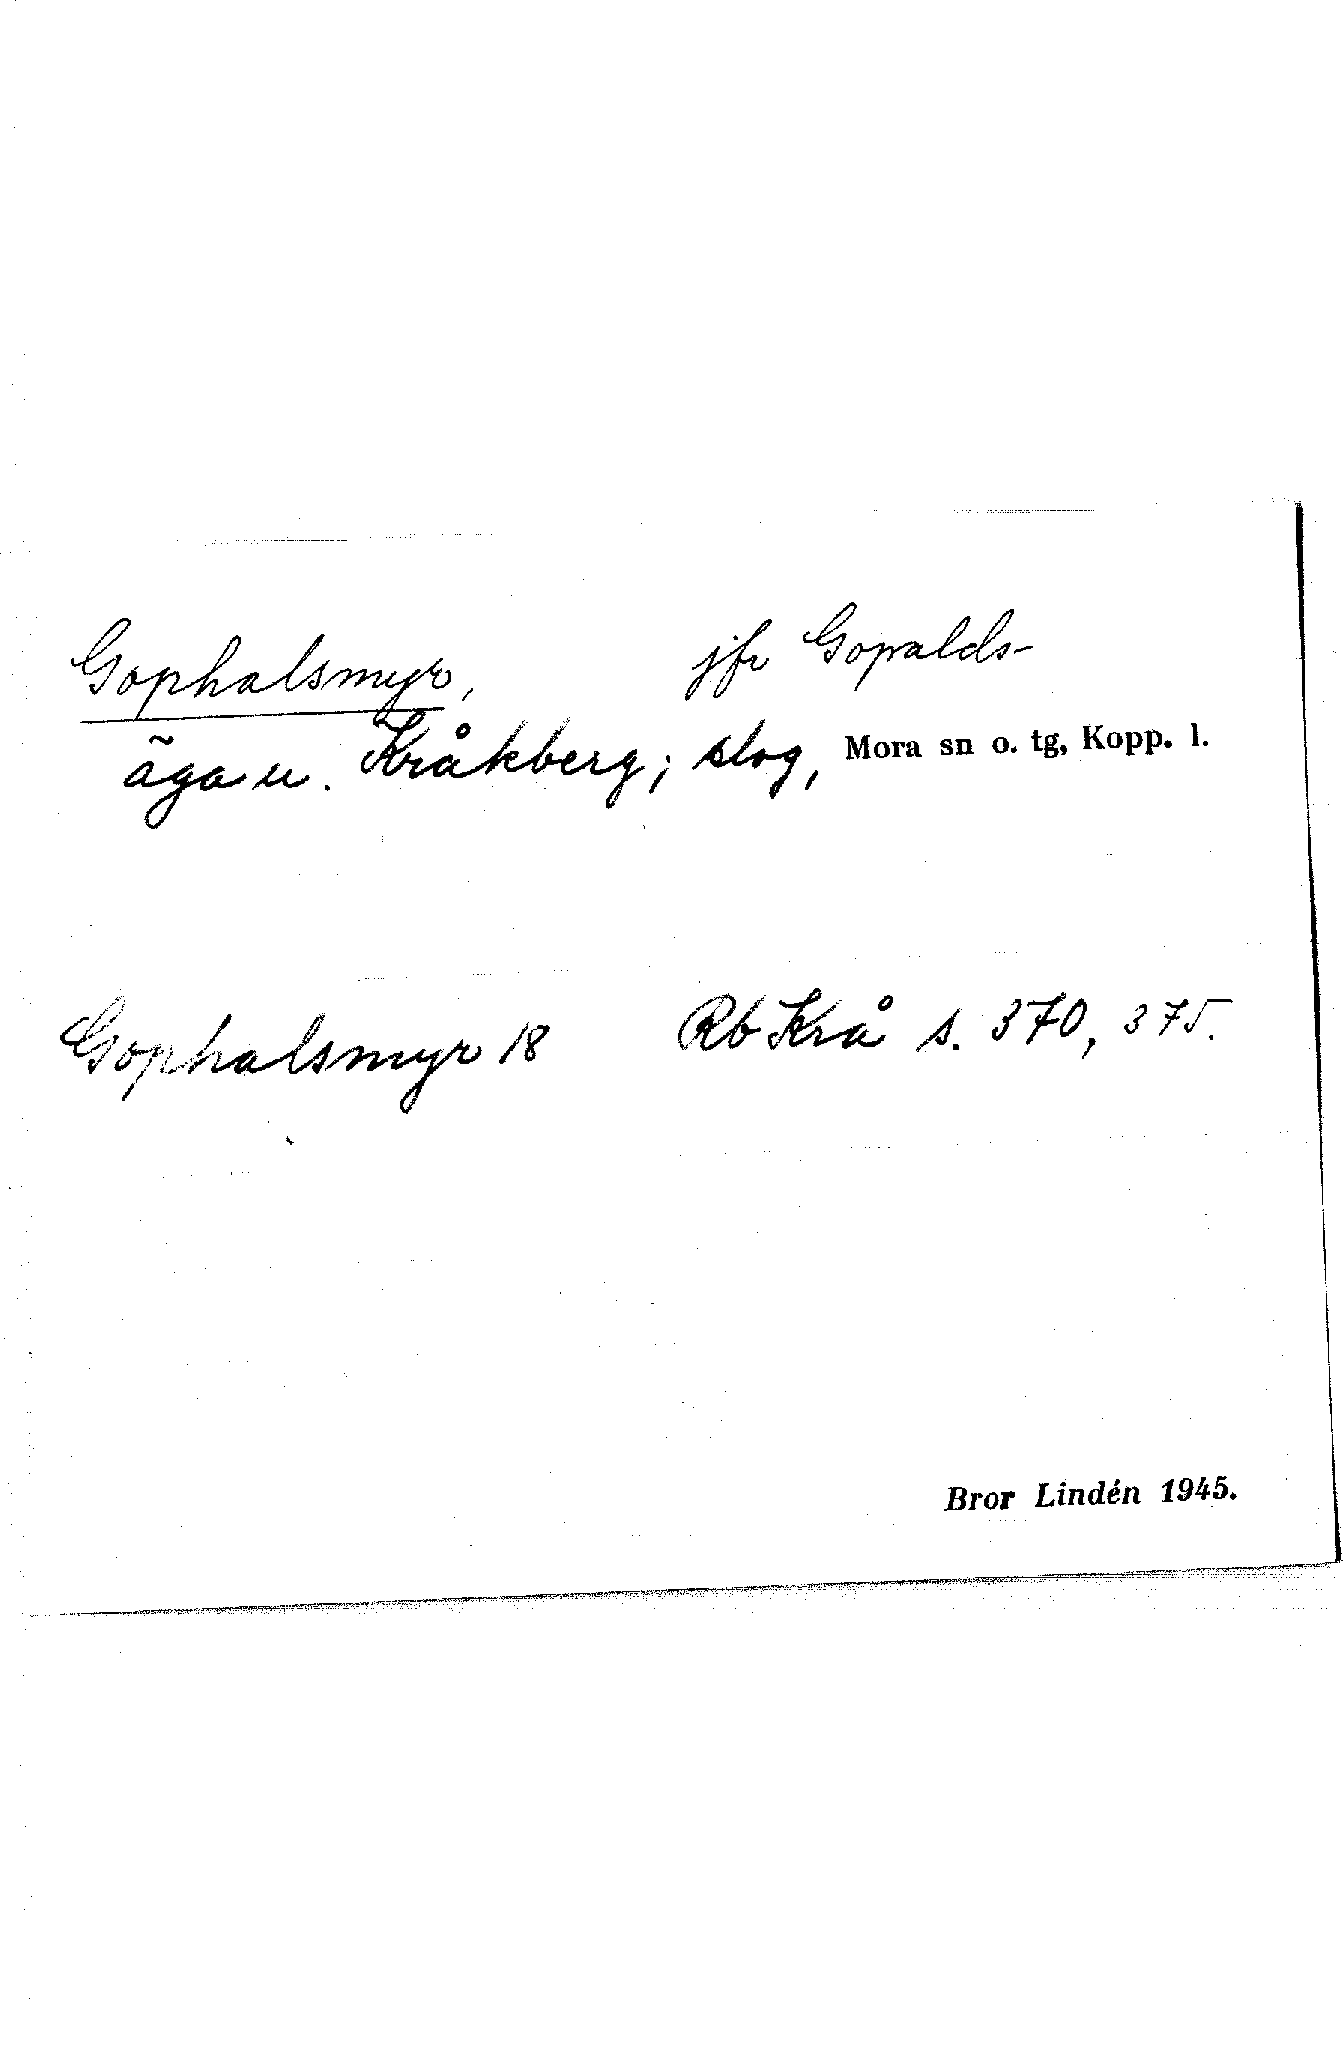 Gophalsmyr, jfr Gopalds-
äga u. Kråkberg; slog, Mora sn o. tg, Kopp. l.
Gophalsmyr 18 Rb Krå s. 370, 375.
Bror Lindén 1945.